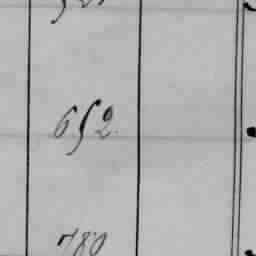 652
780